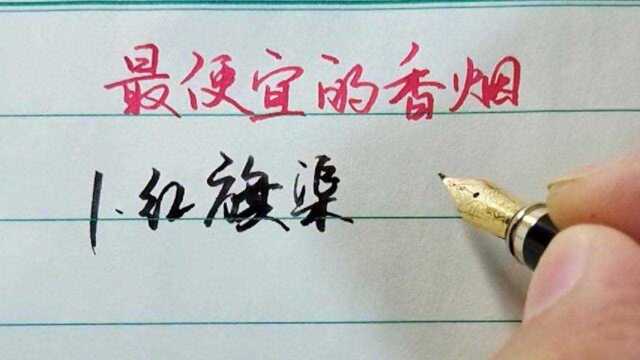 最便宜的香烟
1.红旗渠